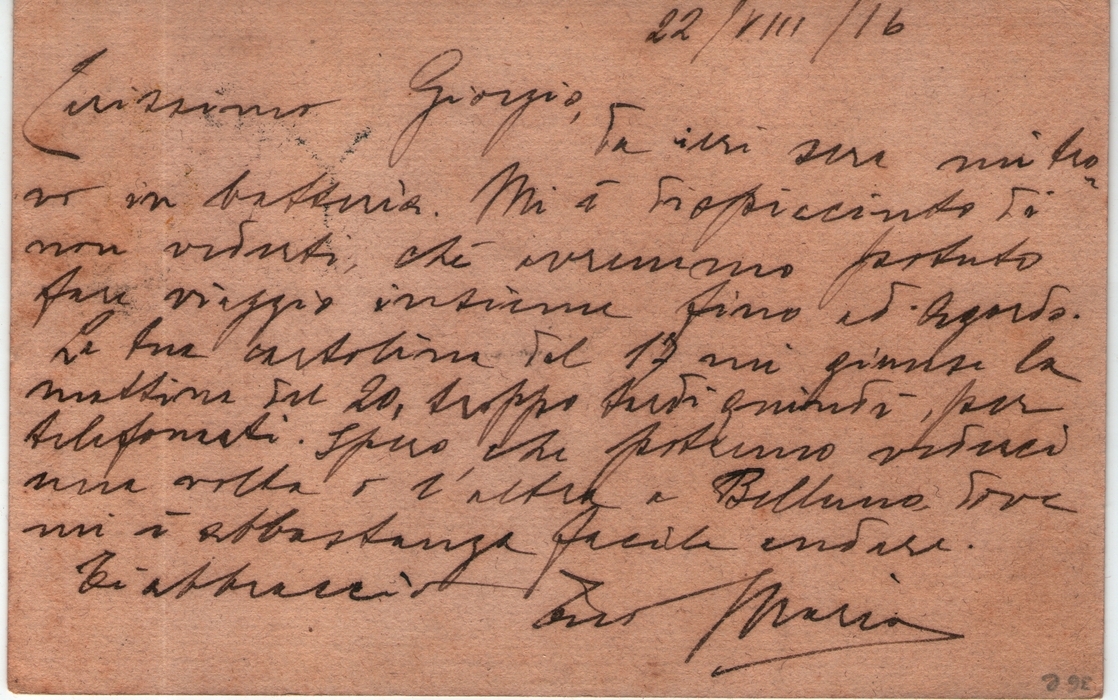 22/VIII/16
Carissimo Giorgio,
da ieri sera mi tro-
vo in batteria. Mi è dispiacciuto di
non vederti, chè avremmo potuto
fare viaggio insieme fino ad Agordo.
La tua cartolina del 17 mi giunse la
mattina del 20, troppo tardi quindi, per
telefonarti. Spero, che potremo vederci
una volta o l'altra a Belluno, dove
mi è abbastanza facile andare.
Ti abbraccio tuo Mario